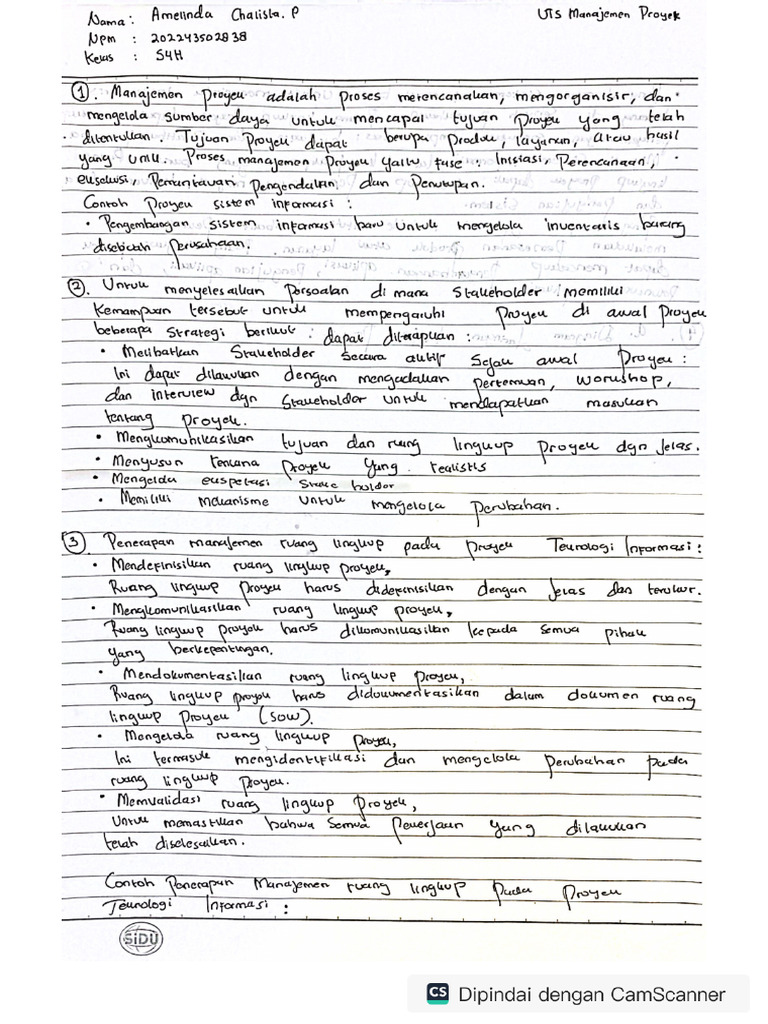 Nama : Amelinda Chalista. P
UTS Manajemen Proyek
Npm : 202243502838
Kelas : S4H
1. Manajemen Proyek adalah Proses merencanakan, mengorganisir, dan
mengelola sumber daya untuk mencapai tujuan Proyek yang telah
ditentukan. Tujuan Proyek dapat berupa Produk, layanan, atau hasil
yang unik. Proses manajemen Proyek yaitu fase : Inisiasi, Perencanaan,
eksekusi, Pemantauan Pengendalian, dan Penutupan.
Contoh Proyek sistem informasi :
• Pengembangan sistem informasi baru untuk mengelola inventaris barang
disebuah Perusahaan.
2. Untuk menyelesaikan Persoalan di mana Stakeholder memiliki
Kemampuan tersebut untuk mempengaruhi Proyek di awal Proyek
beberapa Strategi berikut dapat diterapkan :
• Melibatkan Stakeholder secara aktif Sejak awal Proyek :
Ini dapat dilakukan dengan mengadakan pertemuan, workshop,
dan interview dgn Stakeholder untuk mendapatkan masukan
tentang proyek.
• Mengkomunikasikan tujuan dan ruang lingkup Proyek dgn Jelas.
• Menyusun rencana Proyek Yang realistis
• Mengelola ekspetasi Stake holder
• Memiliki Mekanisme Untuk mengelola Perubahan.
3 Penerapan manajemen ruang lingkup pada Proyek Teknologi Informasi :
• Mendefinisikan ruang lingkup proyek,
Ruang lingkup Proyek harus didefinisikan dengan Jelas dan terukur.
• Mengkomunikasikan ruang lingkup proyek,
Ruang lingkup proyek harus dikomunikasikan kepada Semua pihak
yang berkepentingan.
• Mendokumentasikan ruang lingkup Proyek,
Ruang lingkup proyek harus didokumentasikan dalam dokumen ruang
lingkup Proyek (SOW).
• Mengelola ruang lingkup Proyek,
Ini termasuk mengidentifikasi dan mengelola perubahan pada
ruang lingkup Proyek.
• Memvalidasi ruang lingkup Proyek,
Untuk memastikan bahwa Semua Pekerjaan yang dilakukan
telah diselesaikan.
Contoh Penerapan Manajemen ruang lingkup Pada Proyek
Teknologi Informasi :
SiDU
CS Dipindai dengan CamScanner